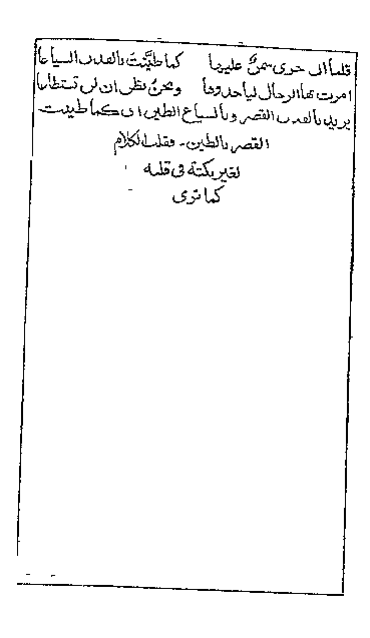 فلما أن جرى سمنٌ عليها كما طيَّنتَ بالفدن السياعا
امرت بها الرجال ليأخذوها ونحنُ نظن ان لن تستطاعا
يريد بالفدن القصر وبالسياع الطين اي كما طينت
القصر بالطين - فقلب الكلام
لغير نكتة في قلبه
كما ترى